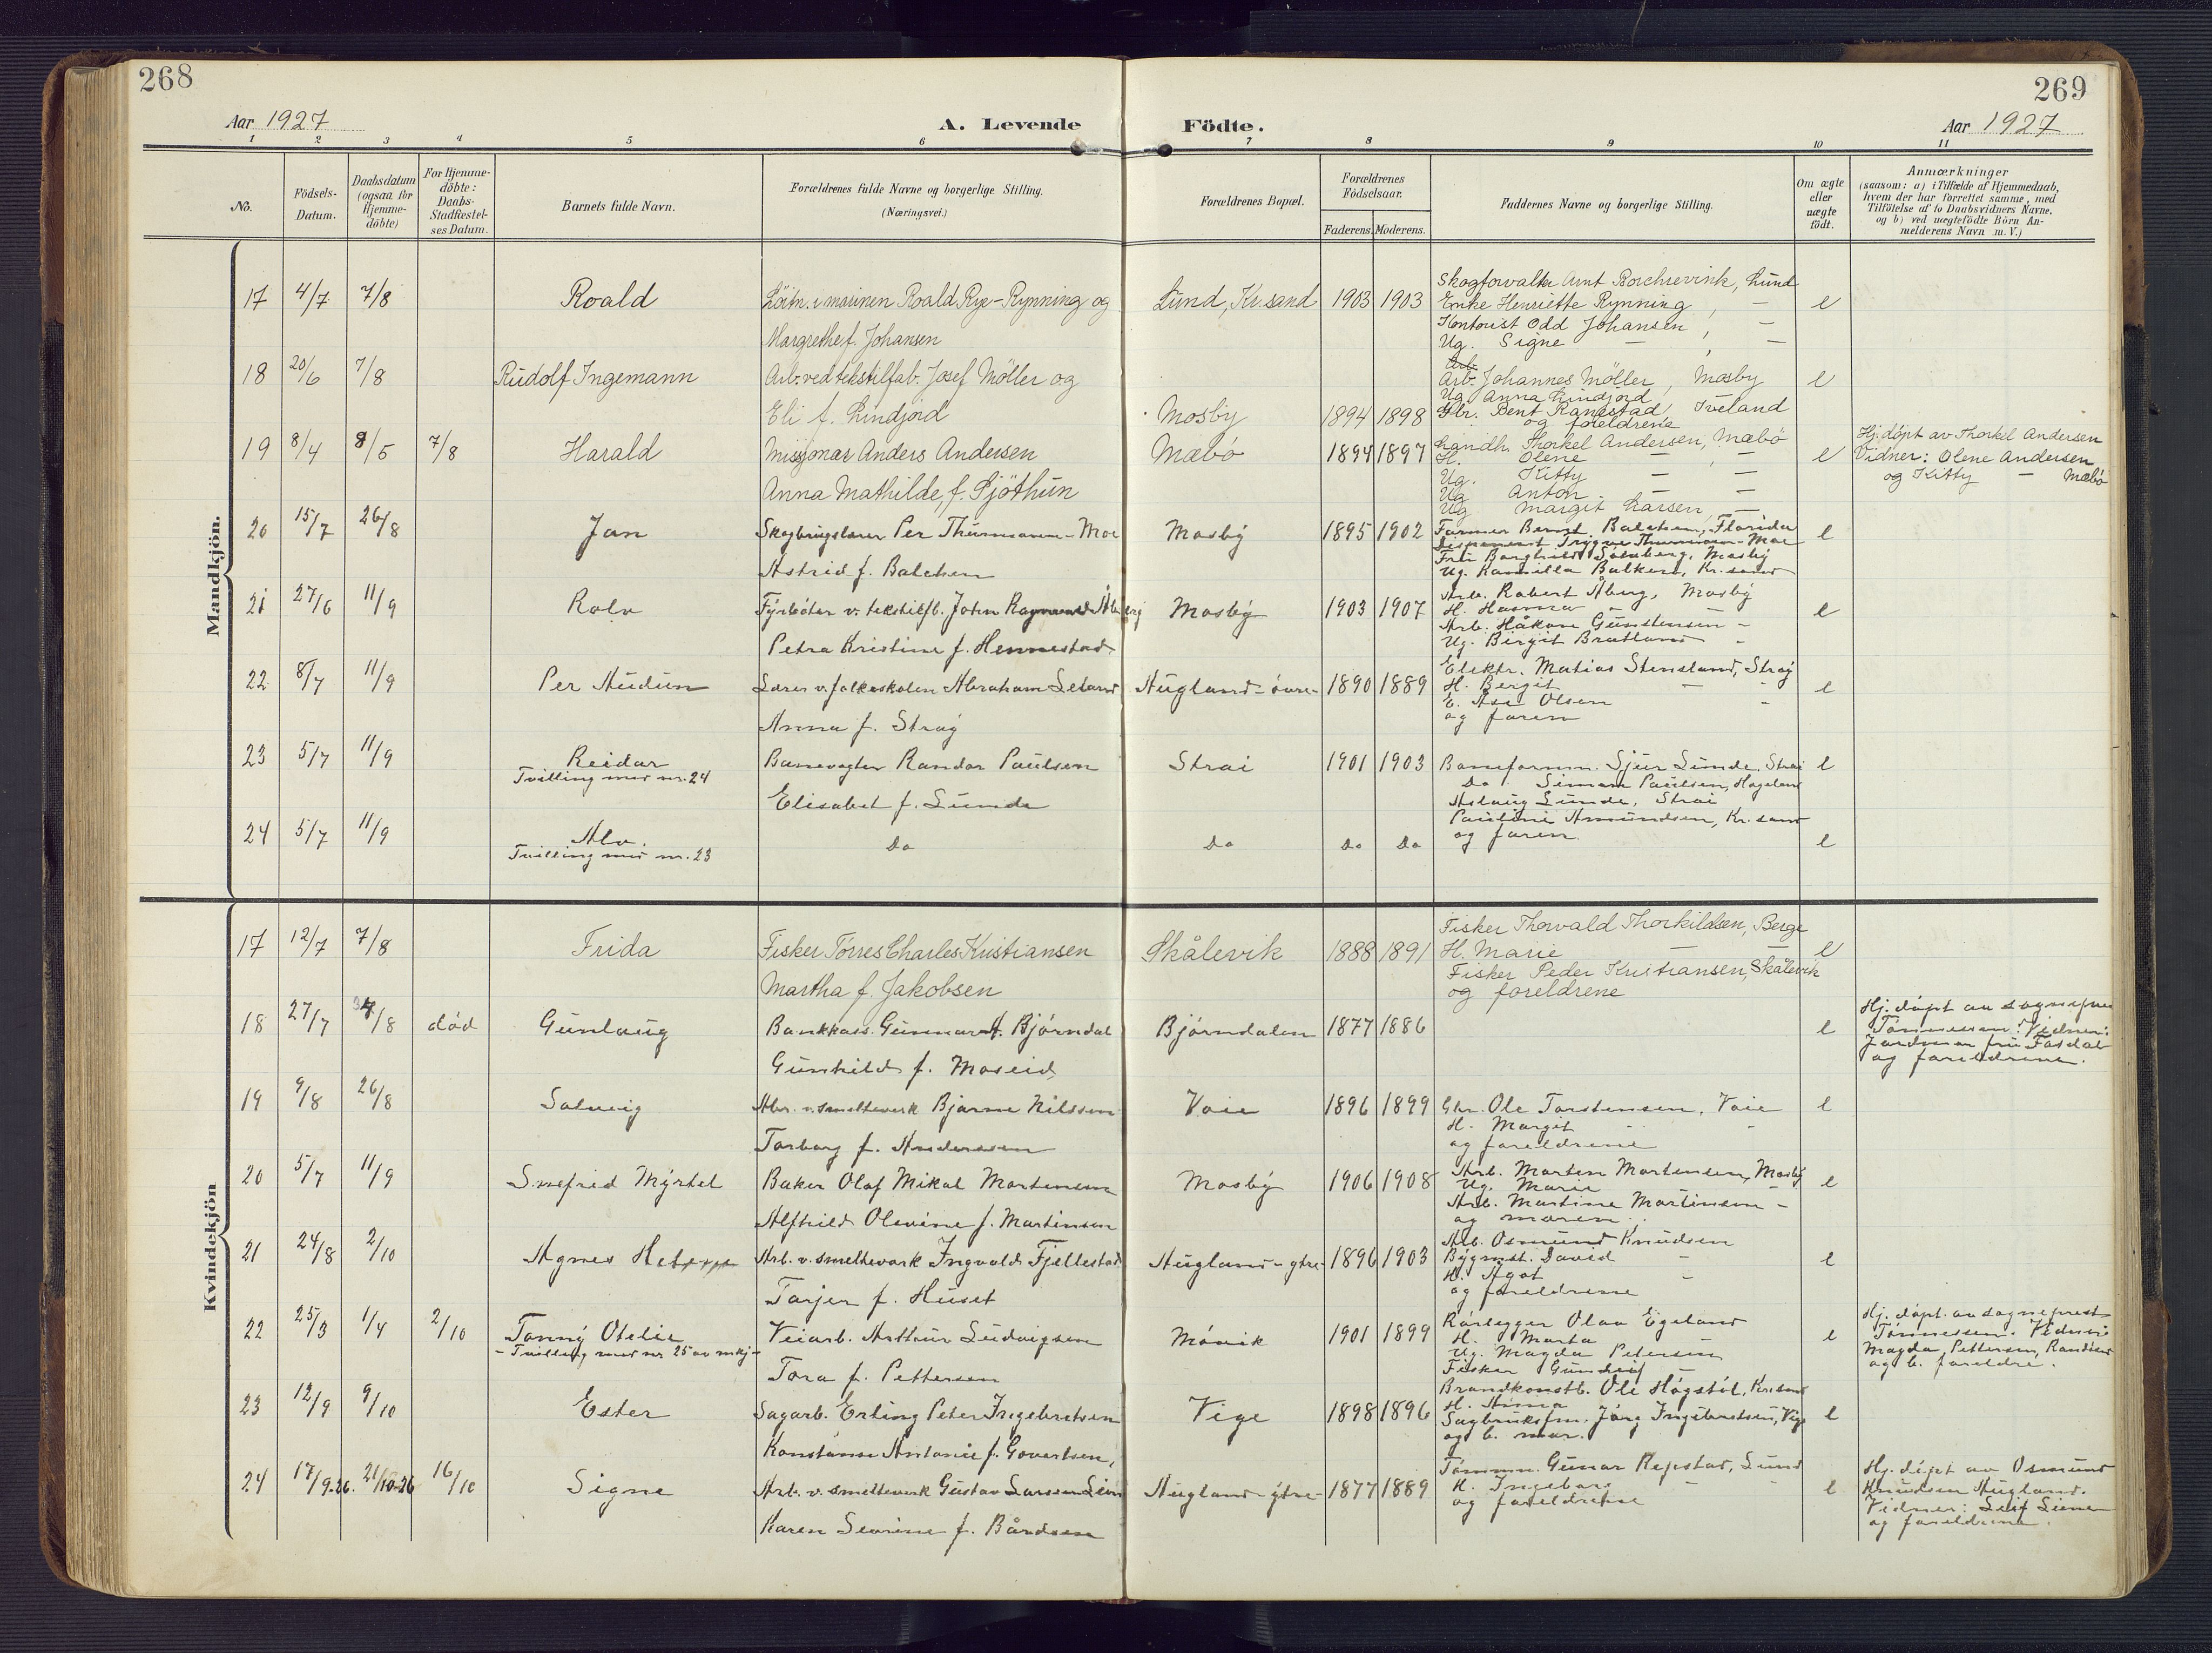 268
269
Aar 1927
A. Levende Födte.
Aar 1927
1 2 3 4 5 6 7 8 9 10 11
No.
Födsels-Datum.
Daabsdatum (ogsaa for Hjemme-döbte)
For Hjemme-döbte: Daabs-Stadfæstel-ses Datum.
Barnets fulde Navn.
Forældrenes fulde Navne og borgerlige Stilling. (Næringsvei.)
Forældrenes Bopæl.
Forældrenes Födselsaar.
Faderens. Moderens.
Faddernes Navne og borgerlige Stilling.
Om ægte eller uægte födt.
Anmærkninger (saasom: a) i Tilfælde af Hjemmedaab, hvem der har forrettet samme, med Tilföielse af to Daabsvidners Navne, og b) ved uægtefödte Börn An-melderens Navn m. V.)
Mandkjön.
17 4/7 7/8 Roald
Löitn. i marinen Roald Rye-Rynning og
Margrethe f. Johansen
Lund, Kr.sand 1903 1903
Skogforvalter Arnt Borchrevink, Lund
Enke Henriette Rynning, —
Kontorist Odd Johansen, —
Ug. Signe — , —
e
18 20/6 7/8 Rudolf Ingemann
Arb. ved tekstilfab. Josef Möller og
Eli f. Lindjord
Mosby 1894 1898
Arb. Johannes Möller, Mosby
Ug. Anna Lindjord
Gbr. Bent Ranestad, Iveland
og foreldrene
e
19 8/4 8/5 7/8 Harald
Missjonær Anders Andersen
Anna Mathilde, f. Sjöthun
Mæbö 1894 1897
Landh. Thorkel Andersen, Mæbö
H. Olene — , —
Ug. Kitty — —
Ug Anton - — —
Ug Margit Larsen, —
e
Hj. döpt av Thorkel Andersen
Vidner: Olene Andersen
og Kitty — Mæbö
20 15/7 26/8 Jan
Skogbrugslærer Per Thurmann-Moe
Astrid f. Balchen
Mosby 1895 1902
Farmer Bernt Balchen, Florida
Disponent Trygve Thurmann-Moe
Fru Borghild Solnberg, Mosby
Ug. Kamilla Balken, Kr.sand
e
21 27/6 11/9 Rolv
Fyrböter v. tekstilfb. John Ragnvald Åberg
Petra Kristine f. Hennestad
Mosby 1903 1907
Arb. Robert Åberg, Mosby
H. -
Arb. Håkon Gunstensen -
Ug. Birgit Bratland -
e
22 8/7 11/9 Per Audun
Lærer v. folkeskolen Abraham Leland
Anna f. Stray
Augland-övre- 1890 1889
Elektr. Matias Stensland, Stray
H. Bergit — -
E. Åse Olsen -
og faren
e
23 5/7 11/9 Reidar
Tvilling med nr. 24
Banevogter Randor Paulsen
Elisabet f. Sunde
Strai 1901 1903
Baneformn. Sjur Sunde, Strai
Do Simon Paulsen, Hageland
Aslaug Sunde, Strai
Pauline Amundsen, Kr. sand
og faren
e
24 5/7 11/9 Alv.
Tvilling med nr. 23
Do Do Do Do e
Kvindekjön
17 12/7 7/8 Frida
Fisker Törres Charles Kristiansen
Martha f. Jakobsen
Skålevik 1888 1891
Fisker Thorvald Thorkildsen, Berge
H. Marie — —
Fisker Peder Kristiansen, Skålevik
og foreldrene
e
18 27/7 /8 död Gunlaug
Bankkass. Gunnar A. Björndal
Gunhild f. Moseid
Björndalen 1877 1886
e
Hj. döpt av sognepr
Tönnessen. Vidner:
Jordmor fru Fosdal
og foreldrene.
19 9/8 26/8 Solveig
Abr. v. smelteverk Bjarne Nilssen
Torborg f. Anderssen
Voie 1896 1899
Gbr. Ole Torstensen, Voie
H. Margit - -
og foreldrene
e
20 5/7 11/9 Synnfrid Myrtel
Baker Olaf Mikal Mortensen
Alfhild Olevine f. Martinsen
Mosby 1906 1908
Arb. Morten Mortensen, Mosby
Ug. Marie -
Arb. Martine Martinsen -
og moren
e
21 24/8 2/10 Agnes
Arb. v. smelteverk Ingvald Fjellestad
Tarjer f. Huset
Augland-ytre- 1896 1903
Arb. Osmund Knudsen
Bygmst. David -
H. Agot -
og foreldrene
e
22 25/3 1/4 2/10 Tonny Otelie
- Tvilling med nr 25 av mkj -
Veiarb. Arthur Ludvigsen
Tora f. Pettersen
Móvik 1901 1899
Rörlegger Olav Egeland
H. Marta —
Ug. Magda Petersen
Fisker Gundolf —
e
Hj. döpt. av sogneprest
Tönnessen. Vidner:
Magda Pettersen, Randöen
og b. foreldre.
23 12/9 9/10 Ester
Sagarb. Erling Peter Ingebretsen
Konstanse Antonie f. Govertsen
Vige 1898 1896
Brandkonstb. Ole Högstöl, Kr.sand
H. Anna —
Sagbruksfm. Jörg Ingebretsen, Vige
og b. mor.
e
24 17/9-26. 21/10-26 16/10 Signe
Arb. v. smelteverk Gustav Larsen Lien
Karen Severine f. Bårdsen
Augland-ytre- 1877 1889
Tömmn. Gunar Repstad, Lund
H. Ingeborg -
og foreldrene
e
Hj. döpt av Osmund
Knudsen Augland.
Vidner: Leif Liene
og foreldrene.